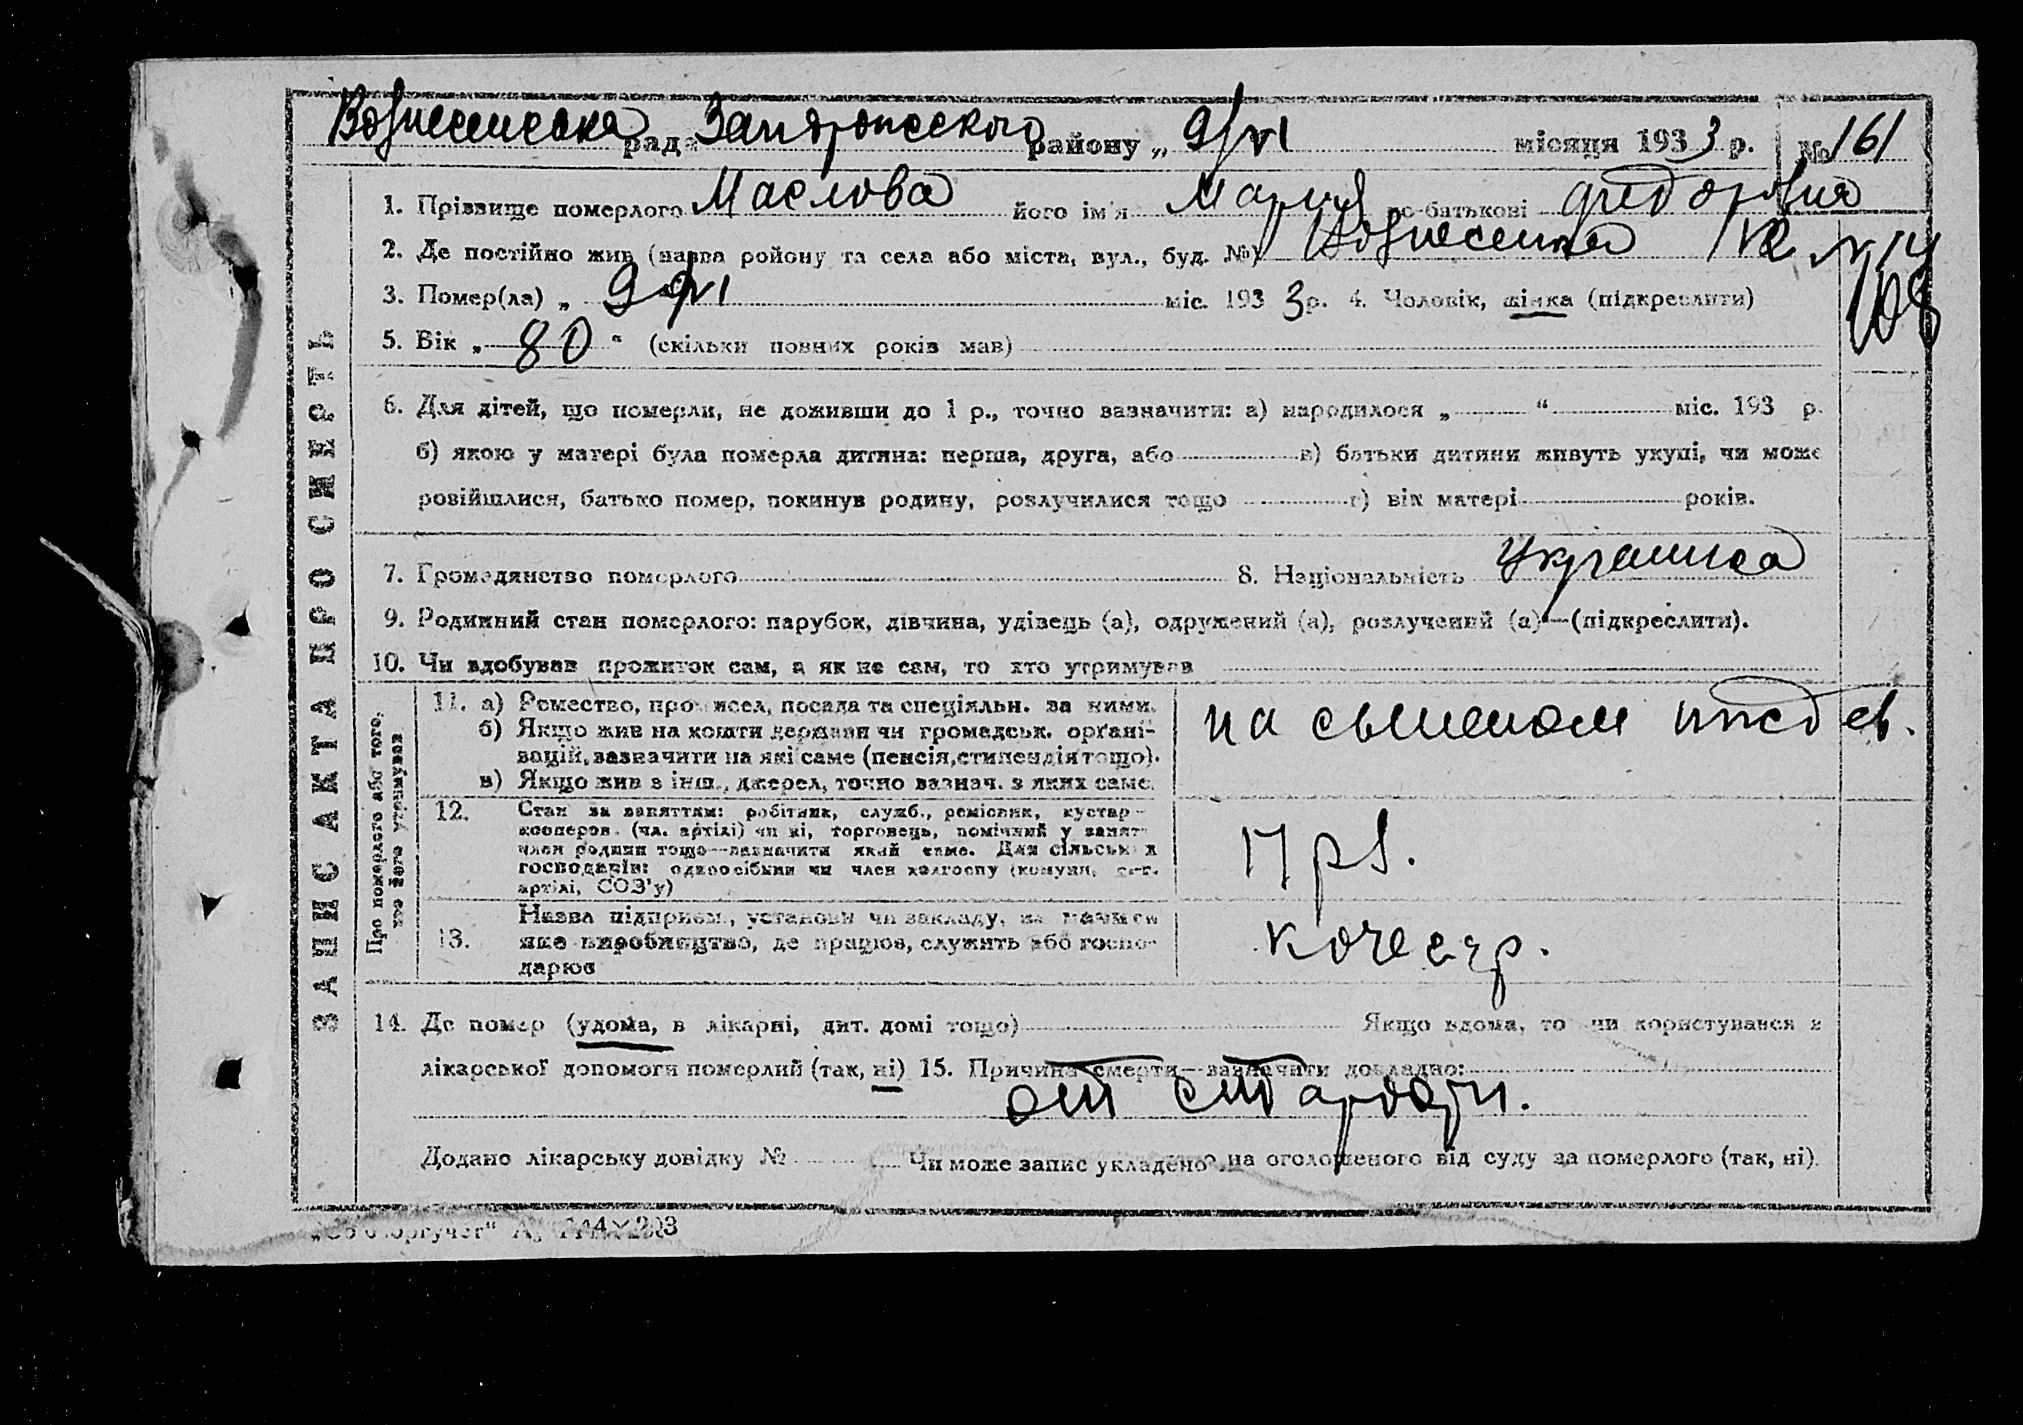 Вознесенска рада Запорожского району „ 9/VI місяця 1933 р. № 161
1. Прізвище померлого Маслова його ім'я Мария по-батькові Федоровна
2. Де постійно жив (назва району та села або міста, вул., буд. №) Вознесенка № 14
108
3. Помер(ла) „ 9 VI міс. 1933 р. 4. Чоловік, жінка (підкреслити)
5. Вік „ 80 “ (скільки повних років мав)
6. Для дітей, що померли, не доживши до 1 р., точно зазначити: а) народилося „ “ міс. 193 р.
б) якою у матері була померла дитина: перша, друга, або в) батьки дитини живуть укупі, чи може
розійшлися, батько помер, покинув родину, розлучилися тощо г) вік матері років.
7. Громадянство померлого 8. Національність Украинка
9. Родинний стан померлого: парубок, дівчина, удівець (а), одружений (а), розлучений (а)—(підкреслити).
10. Чи здобував прожиток сам, а як не сам, то хто утримував
ЗАПИС АКТА ПРО СМЕРТЬ
Про померлого або того, хто його утримував
11. а) Ремество, промисел, посада та спеціяльн. за ними.
б) Якщо жив на кошти держави чи громадськ. орґані-
зацій, зазначити на які саме (пенсія, стипендія тощо).
в) Якщо жив з інш., джерел, точно зазнач. з яких саме.
на
12. Стан за заняттям: робітник, служб., ремісник, кустар-
кооперов. (чл. артілі) чи ні, торговець, помічний у занят.
член родини тощо—зазначити який саме. Для сільських
господарів: одноосібник чи член колгоспу (комуни, с.-г.
артілі, СОЗ'у)
13. Назва підприєм., установи чи закладу, за
яке виробництво, де працює, служить або госпо-
дарює
кочегар.
14. Де помер (удома, в лікарні, дит. домі тощо) Якщо вдома, то чи користувався з
лікарської допомоги померлий (так, ні) 15. Причина смерти—зазначити докладно:
от старости.
Додано лікарську довідку № Чи може запис укладено на оголошеного від суду за померлого (так, ні).
144×203